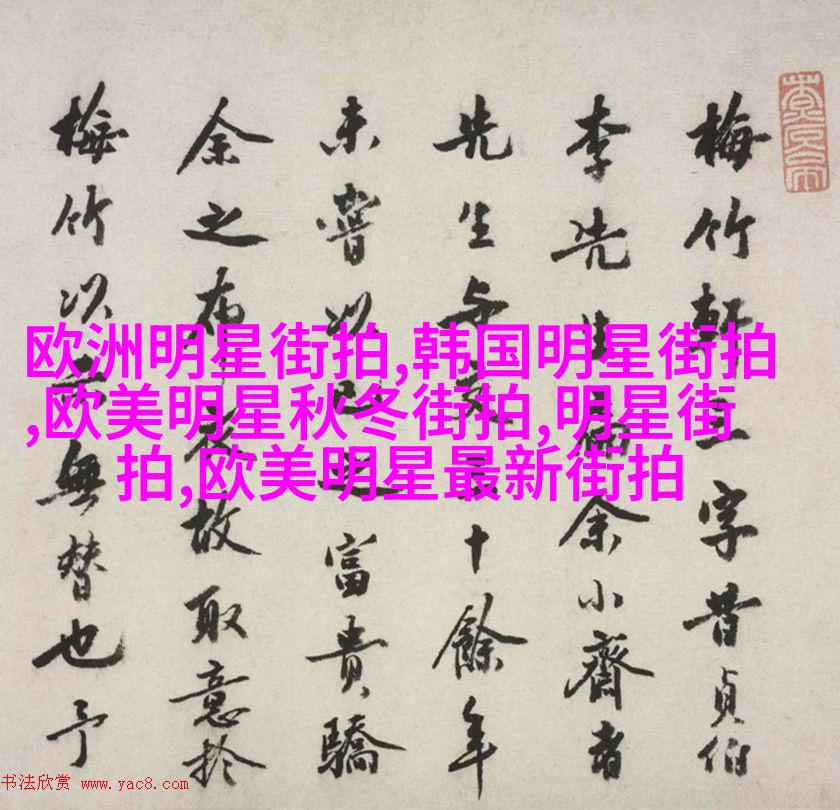 欧洲明星街拍,韩国明星街拍
,欧美明星秋冬街拍,明星街
拍,欧美明星最新街拍
梅竹軒三字昔貞伯
李先生為余小齋書
先生与交十餘年
未嘗以己之富貴驕
余之布衣故取意於
梅竹以示無替也予
书法欣赏 www.yac8.com